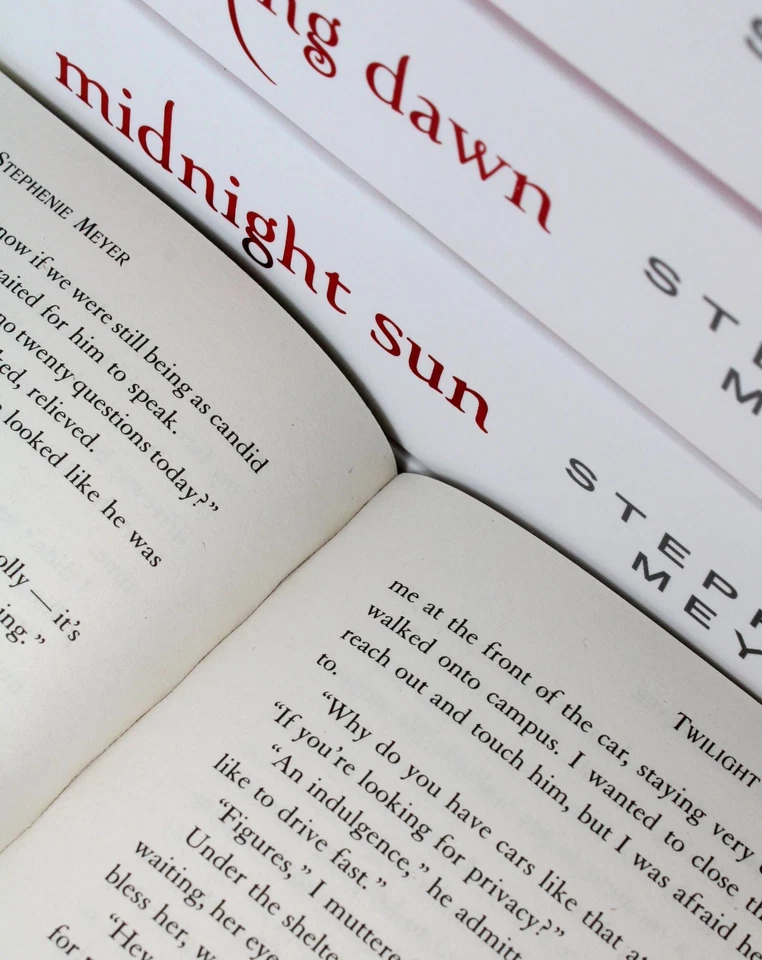 ng dawn
STE
M
midnight sun
STEPH
MEY
STEPHENIE MEYER
now if we were still being as candid
aited for him to speak.
no twenty questions today?”
ked, relieved.
looked like he was
olly — it’s
ing.”
TWILIGHT
me at the front of the car, staying very
walked onto campus. I wanted to close th
reach out and touch him, but I was afraid he
to.
“Why do you have cars like that a
“If you’re looking for privacy?”
“An indulgence,” he admitt
like to drive fast.”
“Figures,” I muttere
Under the shelte
waiting, her eye
bless her, w
“Hey
for